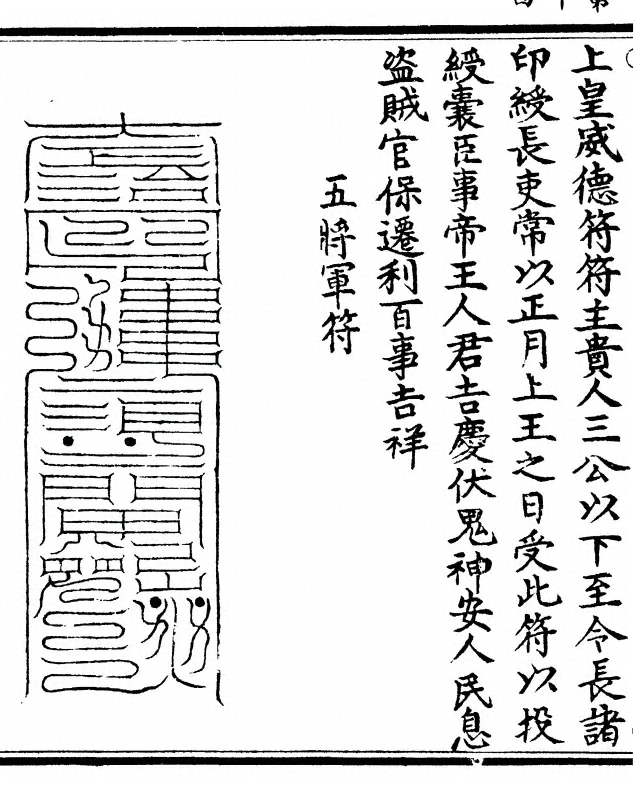 上皇威德符符主貴人三公以下至令長諸
印綬長吏常以正月上王之日受此符以投
綬囊臣事帝王人君吉慶伏鬼神安人民息
盜賊官保遷利百事吉祥
五將軍符